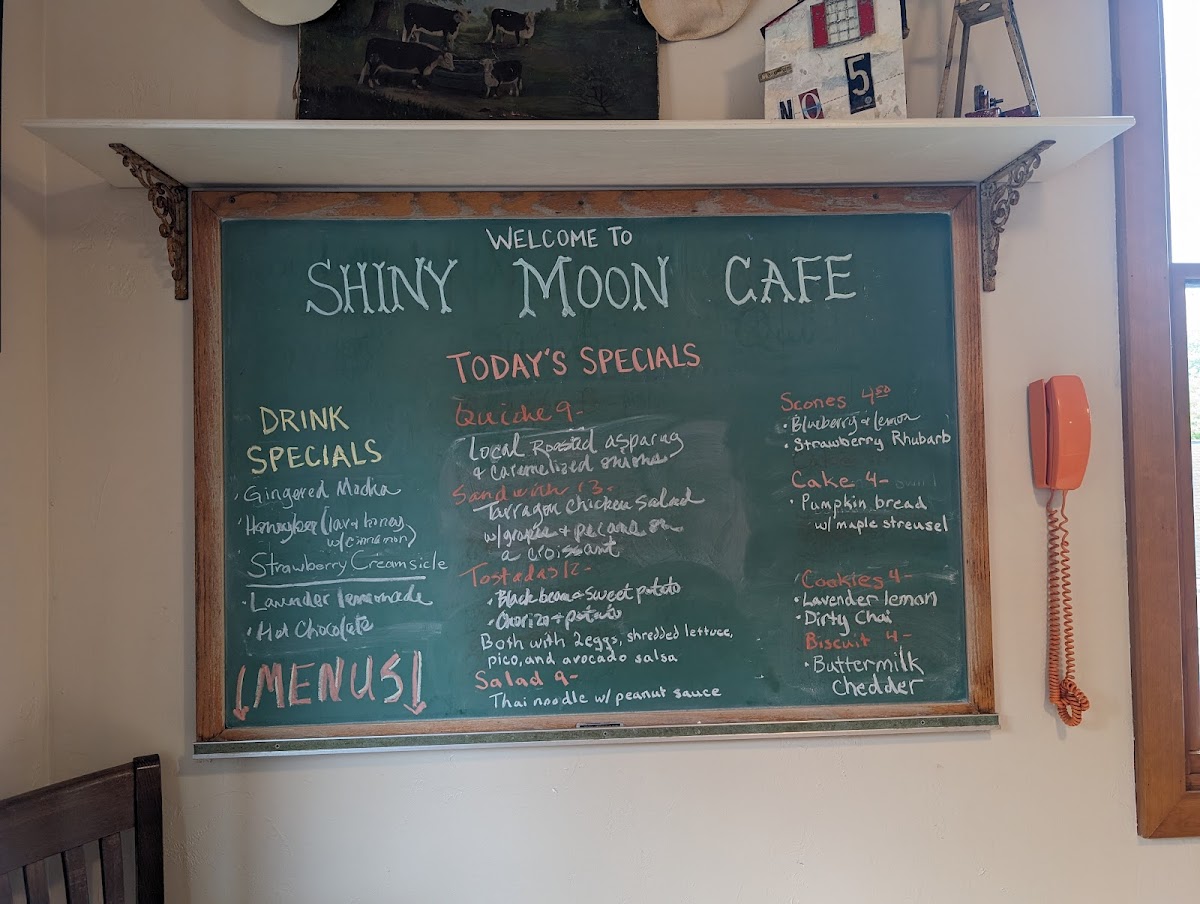 NO 5
WELCOME TO
SHINY MOON CAFE
TODAY'S SPECIALS
DRINK
SPECIALS
· Gingered Mocha
· Honeybee (lav + honey
w/ cinnamon)
Strawberry Creamsicle
· Lavender lemonade
· Hot Chocolate
↓MENUS↓
Quiche 9-
Local Roasted asparag
& caramelized onions
Sandwich 13-
Tarragon Chicken Salad
w/ grapes + pecans on
a croissant
Tostadas 12-
· Black bean + sweet potato
· Chorizo + potato
Both with 2 eggs, shredded lettuce,
pico, and avocado salsa
Salad 9-
Thai noodle w/ peanut sauce
Scones 4.50
· Blueberry + lemon
· Strawberry Rhubarb
Cake 4-
· Pumpkin bread
w/ maple streusel
Cookies 4-
· Lavender lemon
· Dirty Chai
Biscuit 4-
· Buttermilk
Chedder